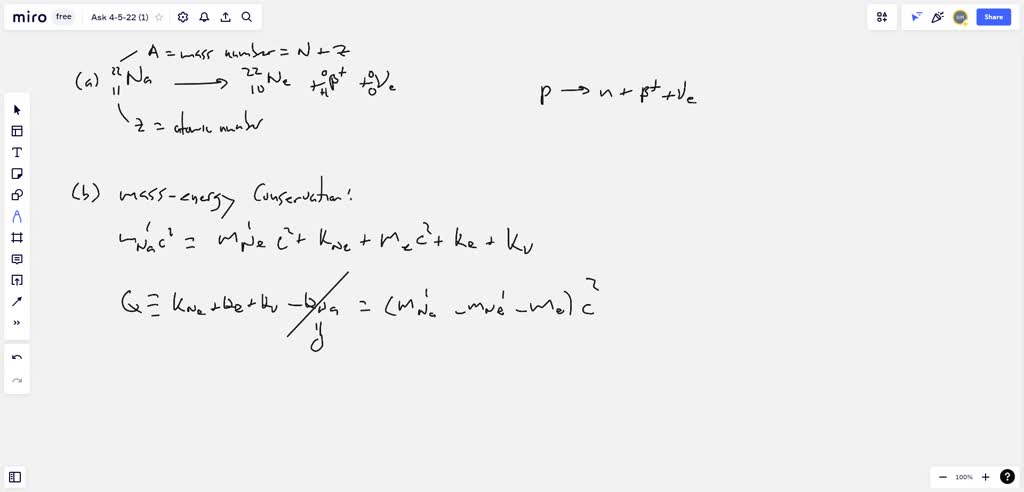 miro free Ask 4-5-22 (1) Share
A = mass number = N + Z
(a) ²²₁₁Na ⟶ ²²₁₀Ne + ⁰₊₁β⁺ + ⁰₀νₑ
p ⟶ n + β⁺ + νₑ
Z = atomic number
(b) mass-energy Conservation:
m'Na c² = m'Ne c² + KNe + mₑc² + Kₑ + Kν
Q ≡ KNe + Kₑ + Kν - KNa = (m'Na - m'Ne - mₑ) c²
0
100%